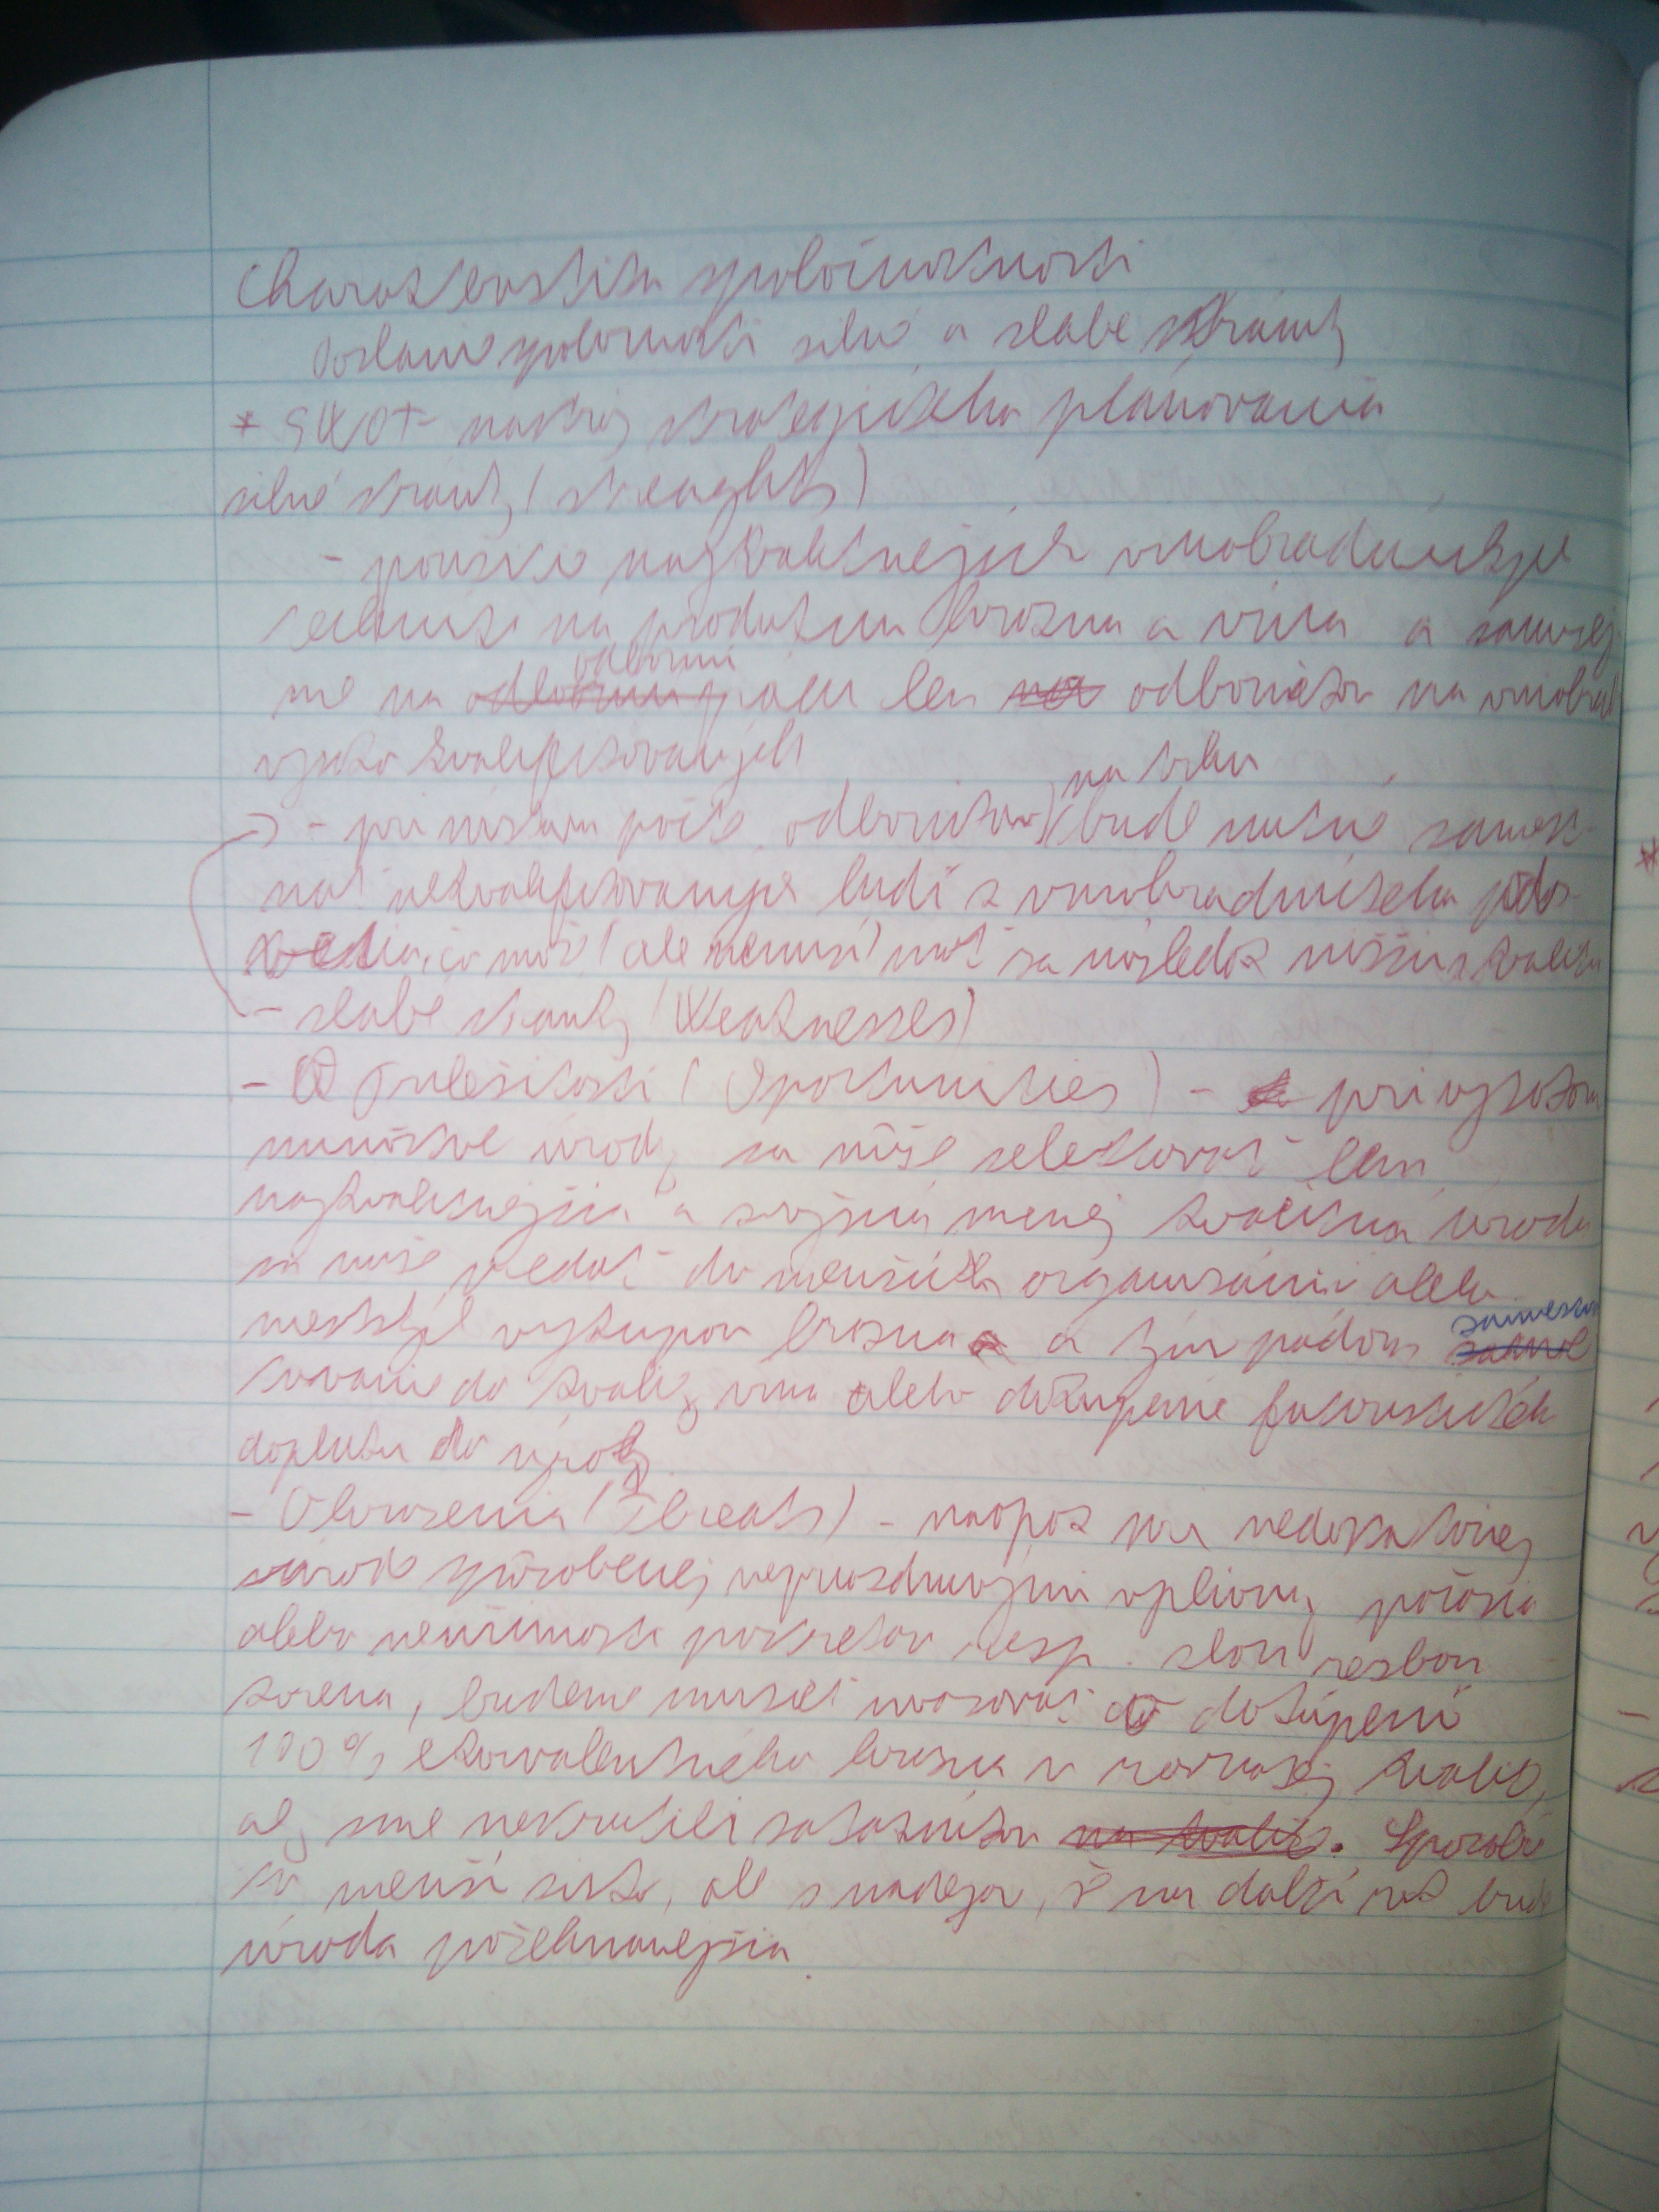 Charakteristika spoločnosti
Poslanie spoločnosti silné a slabé stránky
* SWOT - nástroj strategického plánovania
silné stránky (strenghts)
- použitie najkvalitnejších vinohradníckych
techník na produkciu hrozna a vína a
me na odbornú prácu len odborníkov na
vysoko kvalifikovaných
- pri nízkom počte odborníkov na trhu bude nutné zamest-
nať nekvalifikovaných ludí z vinohradníckeho
čo môže (ale nemusí) mať za následok nižšiu kvalitu
- slabé stránky (Weaknesses)
- Príležitosti (Oportunities) - pri vysokom
množstve úrody sa môže selektovať len
najkvalitnejšia a zvyšná menej kvalitná úroda
sa môže predať do menších organizácií alebo
výkupov hrozna a tým pádom
do kvality vína alebo dokúpenie
do výroby
- Ohrozenia (Threats) - naopak pri nedostatočnej
úrode spôsobenej nepriaznivými vplivmi počasia
alebo neúčinnosti postrekov resp. zlou
, budeme musieť uvažovať o dokúpení
100% ekvivalentného hrozna v rovnakej kvalite,
aby sme nestratili zákazníkov. Spôsobí
to menší zisk, ale s nádejou, že na ďalší rok bude
úroda požehnanejšia.